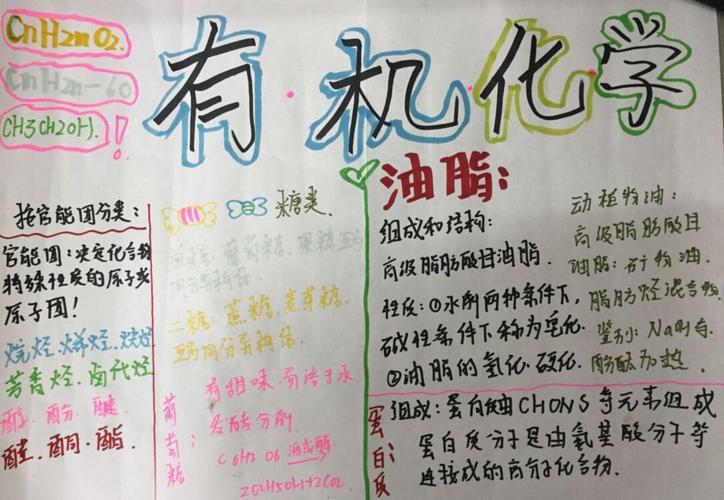 CnH2nO2.
CnH2n-6O
CH3CH2OH.!
有·机·化学
按官能团分类:
官能团:决定化合物
特殊性质的原子或
原子团!
烷烃·烯烃·炔烃
芳香烃·卤代烃
醇·酚·醚
醛·酮·酯
糖类.
葡萄糖.果糖互为
同分异构体
二糖:蔗糖.麦芽糖.
互为同分异构体
葡萄糖
有甜味.易溶于水
发酵分解
C6H12O6 酒或酶
2C2H5OH+2CO2
油脂:
组成和结构:
高级脂肪酸甘油脂.
性质:①水解两种条件下,
碱性条件下称为皂化.
②油脂的氢化.硬化.
动植物油:
高级脂肪酸甘
油脂:矿物油.
脂肪烃混合物
鉴别:NaOH与
酚酞加热.
蛋白质:
组成:蛋白质由CHONS等元素组成
蛋白质分子是由氨基酸分子等
连接成的高分子化合物.